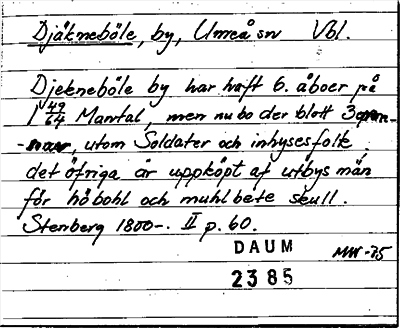 Djäkneböle, by, Umeå sn Vbl.
Djekneböle by har haft 6. åboer på
1 49/64 Mantal, men nu bo der blott 3
utom Soldater och inhysesfolk,
det öfriga är uppköpt af utbys män
för höbohl och muhlbete skull.
Stenberg 1800-. II p. 60.
DAUM
MW-75
2385